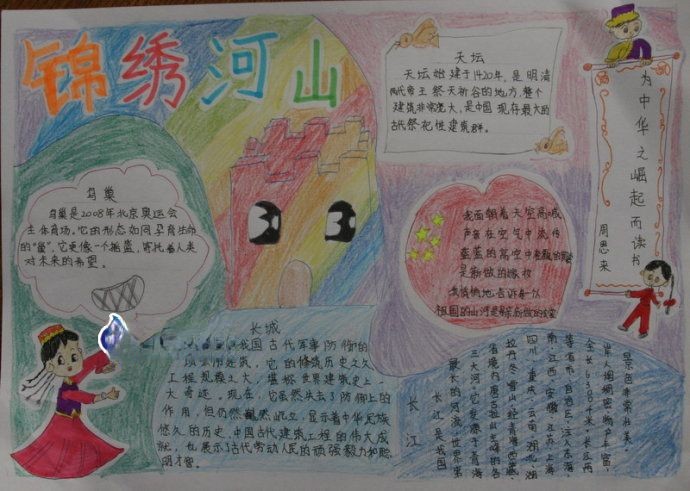 锦绣河山
天坛
天坛始建于1420年,是明清
两代帝王祭天祈谷的地方,整个
建筑非常宏大,是中国现存最大的
古代祭祀性建筑群。
为中华之崛起而读书
周恩来
鸟巢
鸟巢是2008年北京奥运会
主体育场。它的形态如同孕育生命
的“巢”,它更像一个摇篮,寄托着人类
对未来的希望。
我面朝着天空高喊
声音在空气中流传
蓝蓝的高空中
是新做的嫁妆
我悄悄地告诉每一人
祖国的山河是
长城
我国古代军事防御的
建筑,它的修筑历史之久
工程规模之大,堪称世界建筑史上一
大奇迹。现在,它虽然失去了防御上的
作用,但仍然巍然屹立,显示着中华民族
悠久的历史,中国古代建筑工程的伟大成
就,也展示了古代劳动人民的顽强毅力和聪
明才智。
长江
长江是我国
最长的河流,世界第
三大河,它发源于青海
省境内唐古拉山主峰的各
拉丹冬雪山,经青海、西藏、
四川、重庆、云南、湖北、湖
南、江西、安徽、江苏、上海
等省市自治区,注入东海,
全长6384千米,长江两
岸人口稠密,物产丰富,
景色非常壮美。